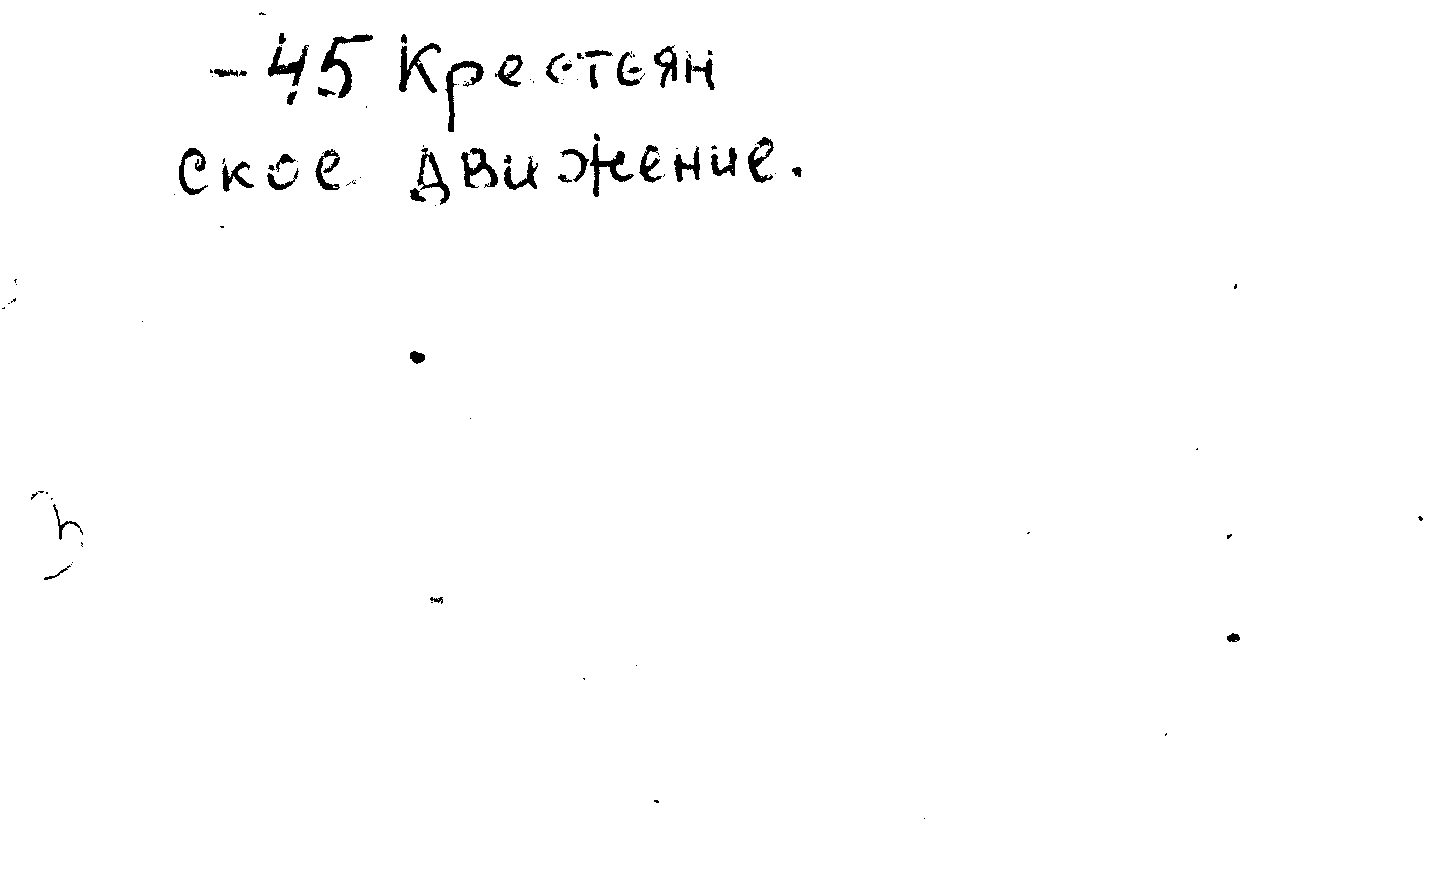 -45 Крестьян
ское движение.